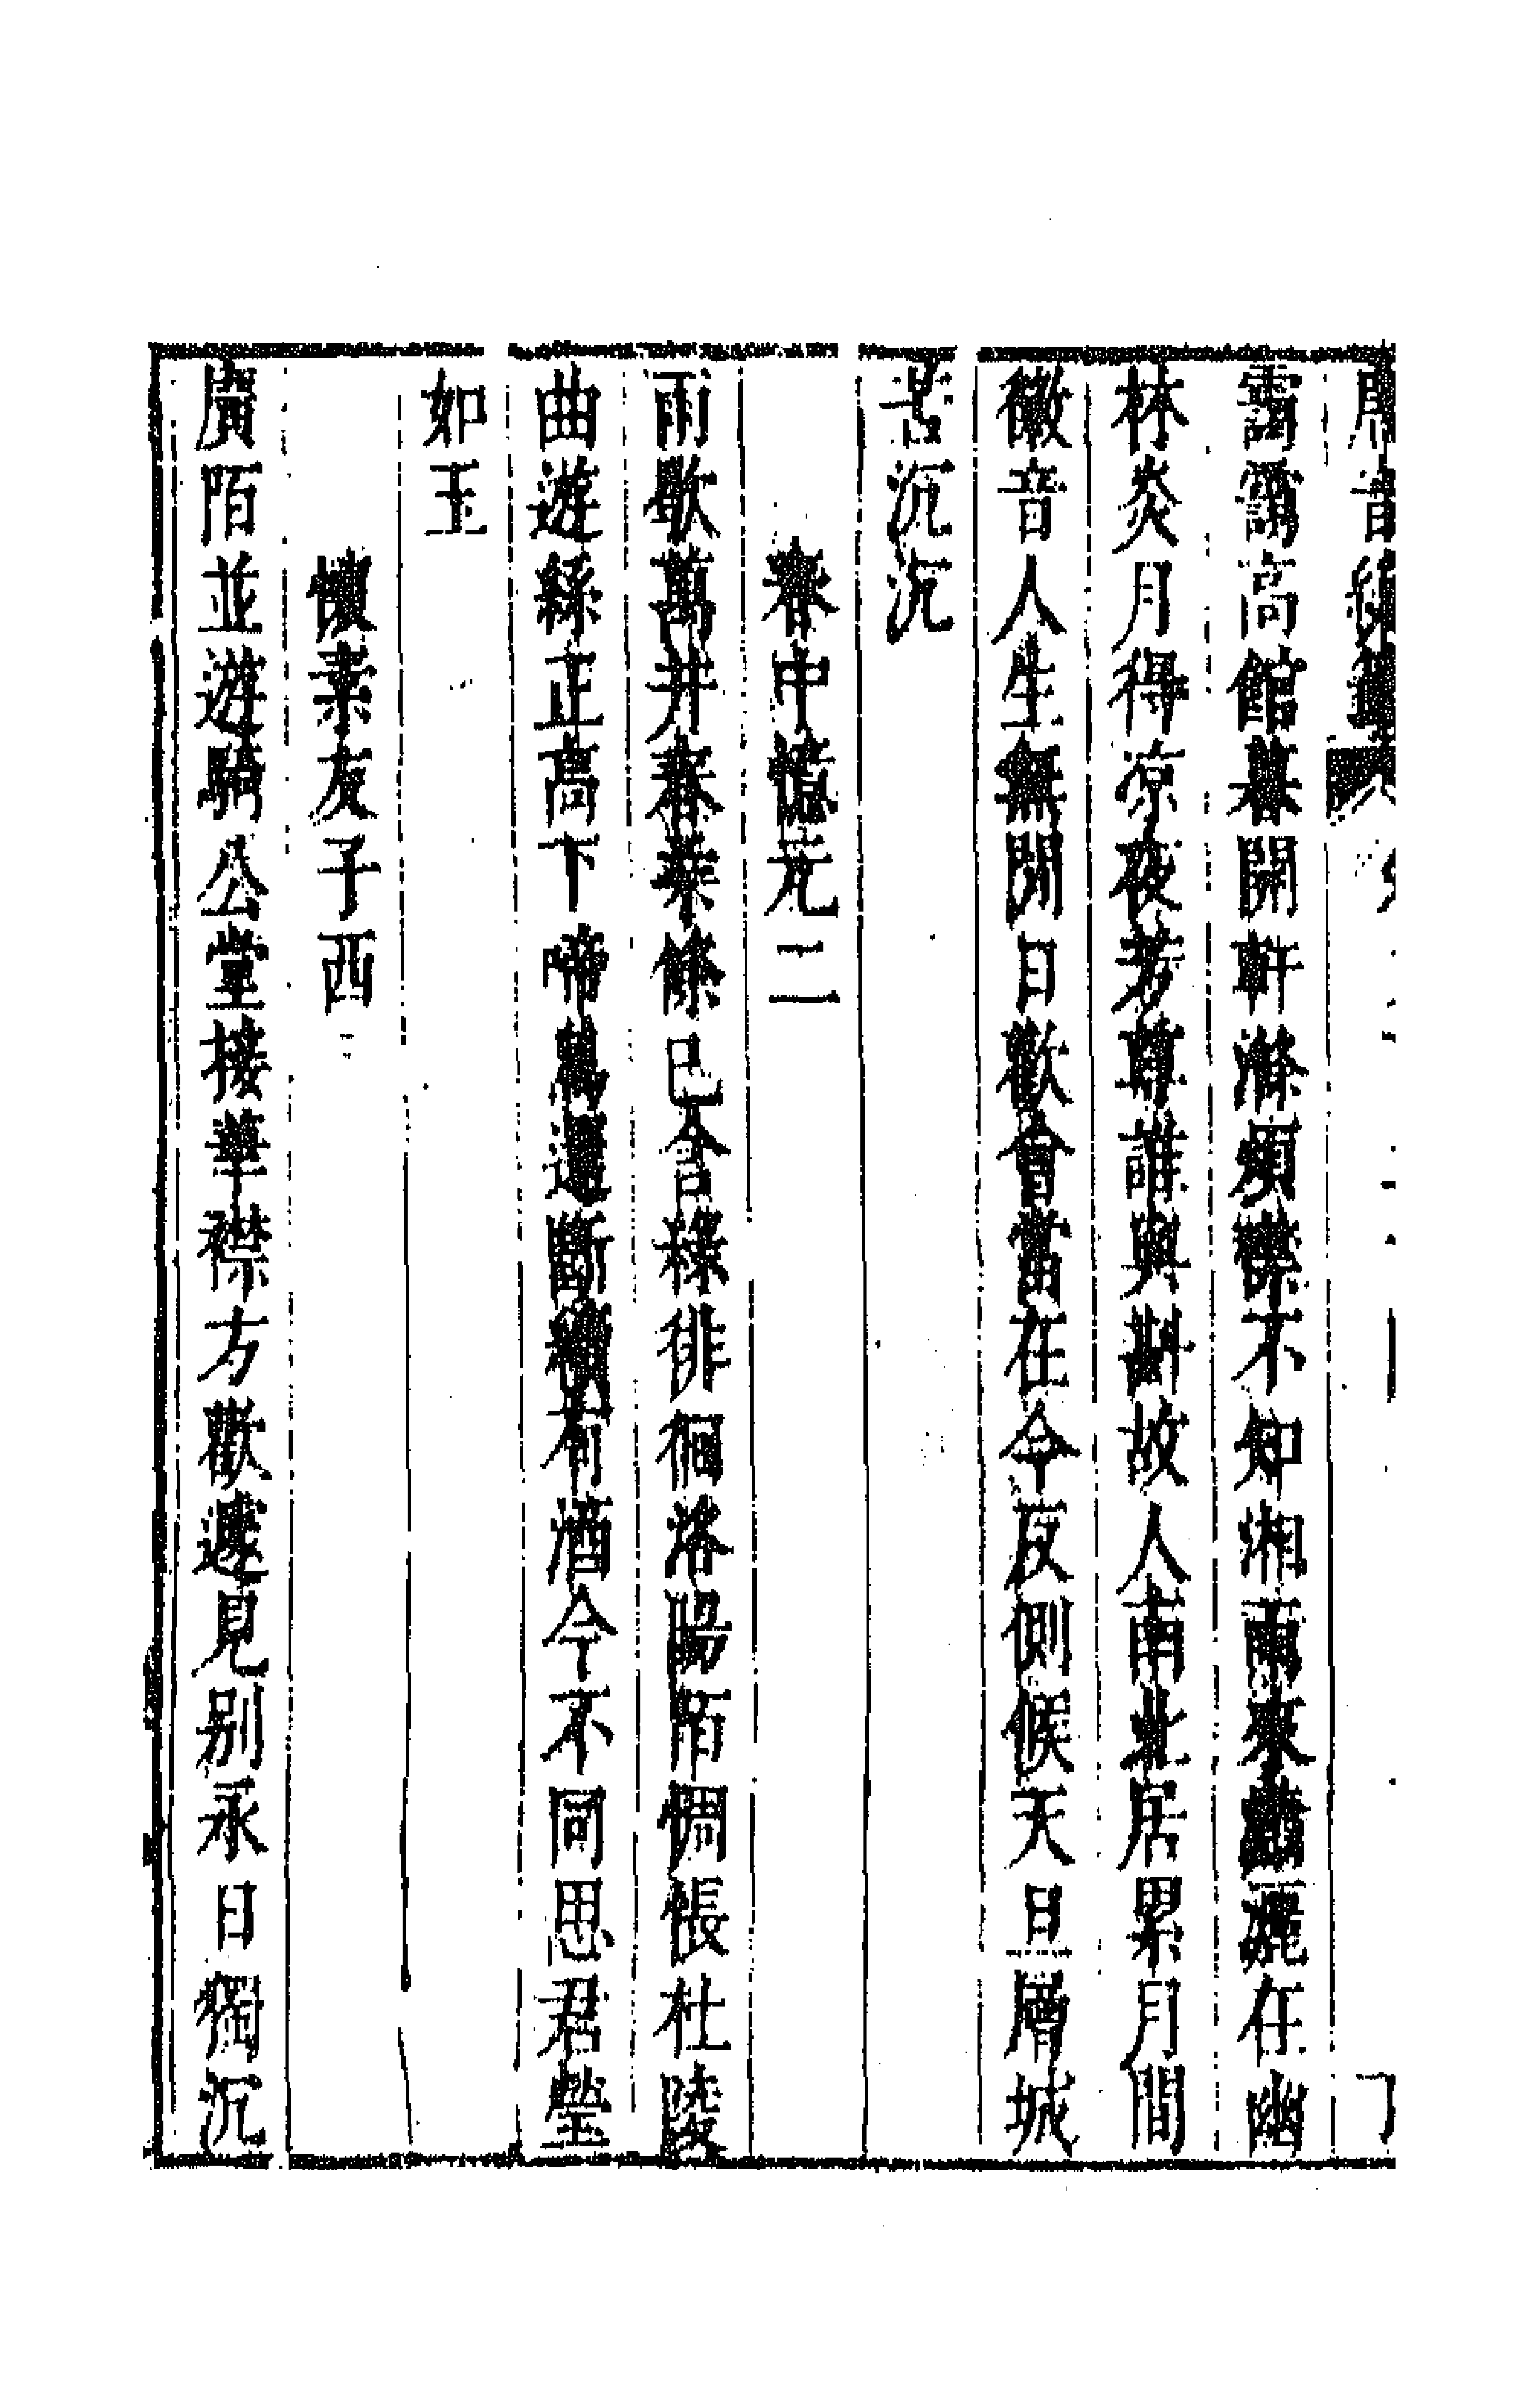 靄靄高館暮開軒滌煩襟不知湘雨來瀟灑在幽
林炎月得涼夜芳尊誰與斟故人南北居累月間
徽音人生無閒日歡會當在今反側候天旦層城
苦沉沉
春中憶元二
雨歇萬井春柔條已含綠徘徊洛陽陌惆悵杜陵
曲遊絲正高下啼鳥還斷續有酒今不同思君瑩
如玉
懷素友子西
廣陌並遊騎公堂接華襟方歡遽見別永日獨沉